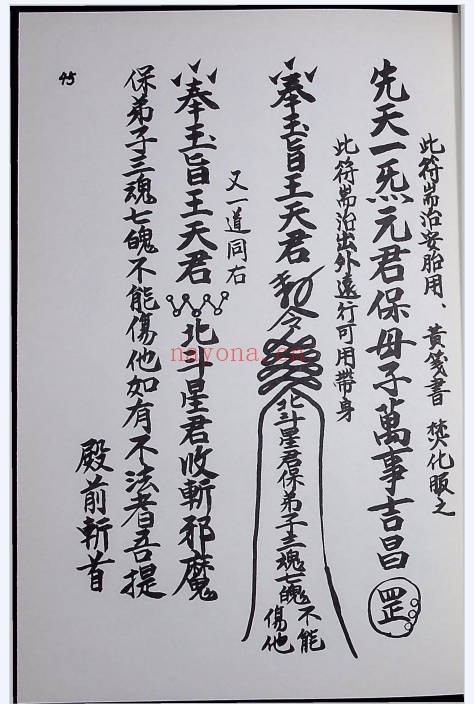 此符耑治安胎用、黃箋書 焚化服之
先天一炁元君保母子萬事吉昌 罡
此符耑治出外遠行可用帶身
奉玉旨王天君勅令
北斗星君保弟子三魂七魄不能傷他
又一道同右
奉玉旨王天君 北斗星君收斬邪魔
保弟子三魂七魄不能傷他如有不法者吾提
殿前斬首
45
nayona.cn